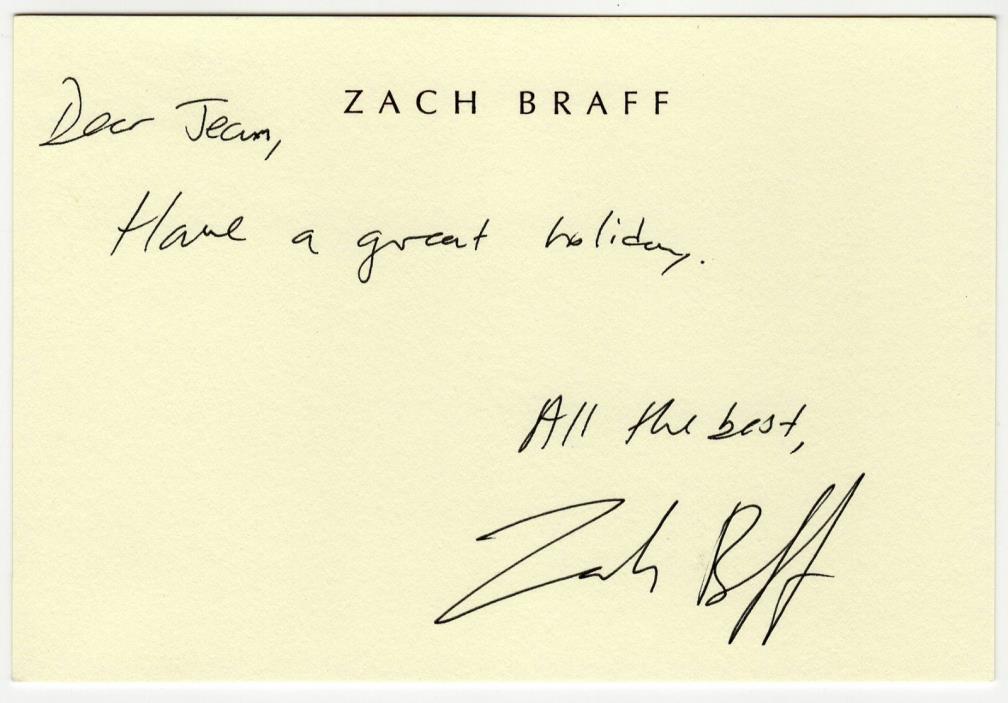 ZACH BRAFF
Dear Team,
Have a great holiday.
All the best,
Zach Braff